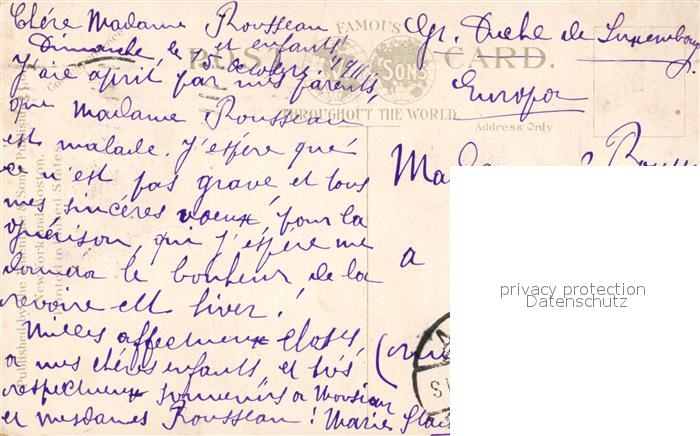 Chére Madame Rousseau
et enfants
Dimanche, le 15 octobre 1911
J'aie aprit par mes parents,
que Madame Rousseau
est malade. J'espére que
ce n'est pas grave, et tous
mes sincéres voeux, pour la
guérison, qui j'espére me
donnera le bonheur de la
revoire cet hiver!
Milles affectueux
a mes chéres enfants, et trés
respectueux souvenirs a Monsieur
et mesdames Rousseau! Marie
FAMOUS
POST CARD.
& SONS
THROUGHOUT THE WORLD.
Address Only
Gr. Duché de Luxembourg
Europa
a
privacy protection
Datenschutz
New York and Boston.
Printed in United States